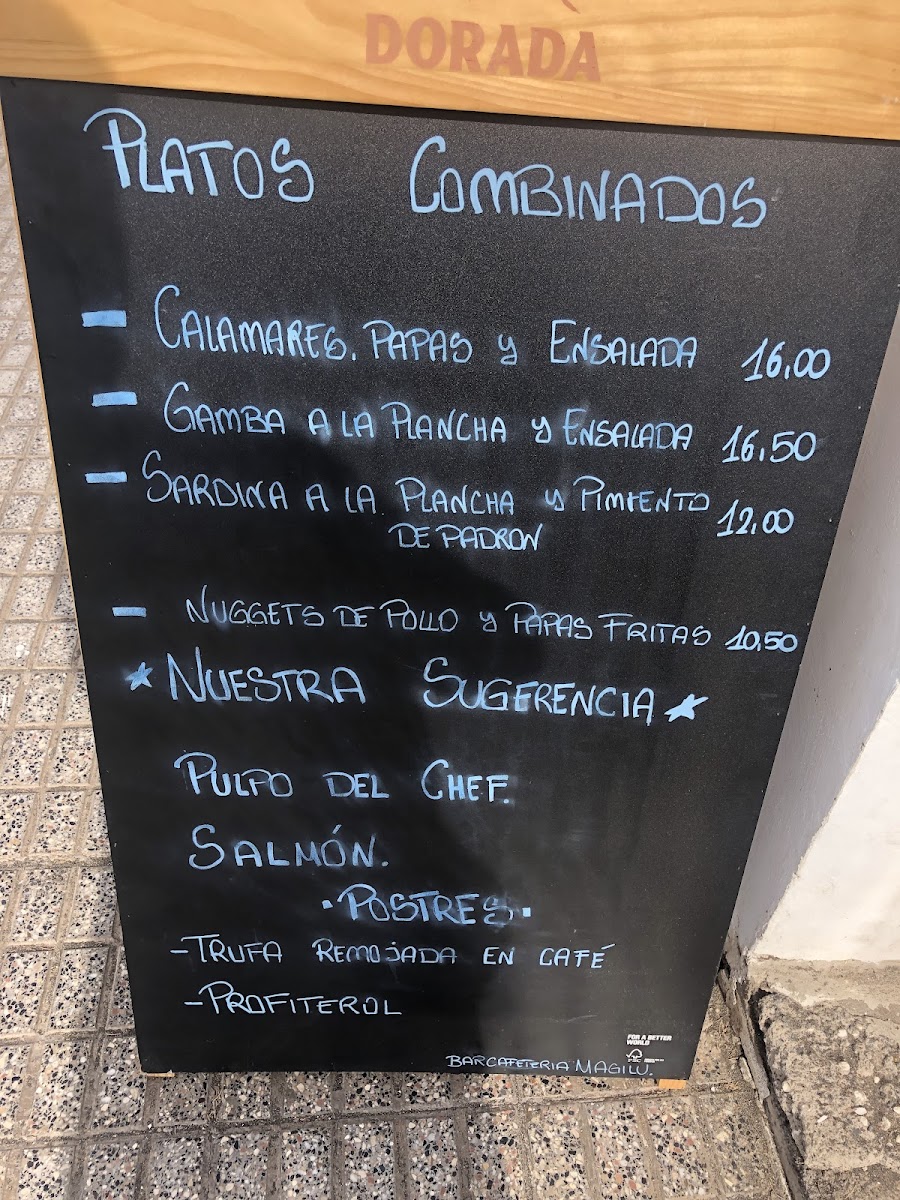 DORADA
PLATOS COMBINADOS
- CALAMARES, PAPAS Y ENSALADA 16,00
- GAMBA A LA PLANCHA Y ENSALADA 16,50
- SARDINA A LA PLANCHA Y PIMIENTO 12,00
DE PADRON
- NUGGETS DE POLLO Y PAPAS FRITAS 10,50
* NUESTRA SUGERENCIA *
PULPO DEL CHEF.
SALMÓN.
· POSTRES ·
- TRUFA REMOJADA EN CAFÉ
- PROFITEROL
FOR A BETTER
WORLD
FSC
BARCAFETERIA MAGILU.